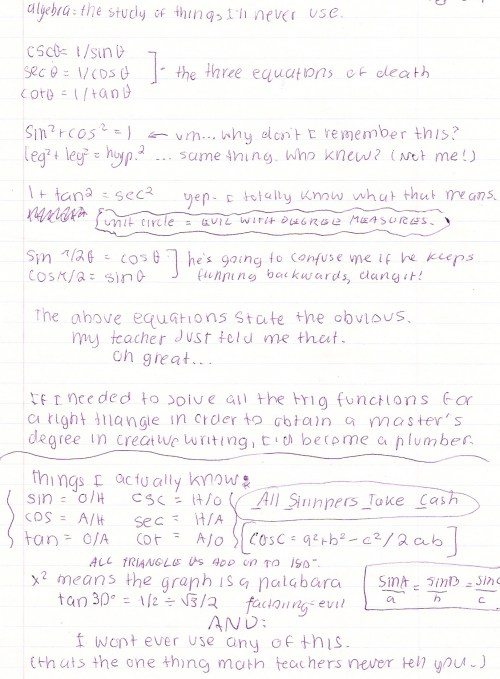 algebra: the study of things I'll never use.
cscθ= 1/sinθ
secθ = 1/cosθ ]- the three equations of death
cotθ = 1/tanθ
sin²+cos²=1 ← um... why don't I remember this?
leg²+leg²=hyp.² ... same thing. Who knew? (Not me!)
1+tan²=sec² yep- I totally know what that means.
unit circle = EVIL WITH DEGREE MEASURES.
sin π/2θ = cosθ ] he's going to confuse me if he keeps
cosπ/2 = sinθ running backwards, dang it!
The above equations state the obvious.
my teacher just told me that.
oh great...
If I needed to solve all the trig functions for
a right triangle in order to obtain a master's
degree in creative writing, I'd become a plumber.
things I actually know:
sin = O/H csc = H/O All Strippers Take Cash
cos = A/H sec = H/A
tan = O/A cot = A/O [cosC = a²+b²-c²/2ab]
ALL TRIANGLE ∠s ADD UP TO 180°.
x² means the graph is a palabara
sinA/a = sinB/b = sinC/c
tan30° = 1/2 ÷ √3/2 factoring=evil
AND:
I wont ever use any of this.
(thats the one thing math teachers never tell you.)